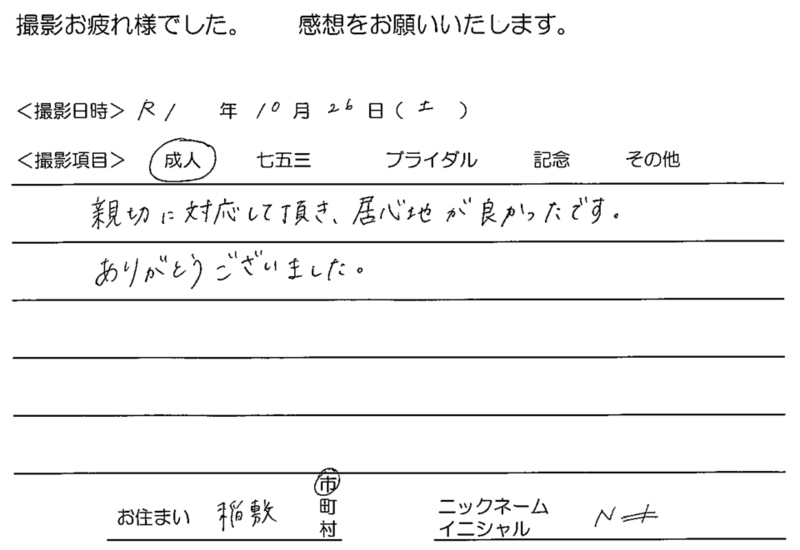 撮影お疲れ様でした。 感想をお願いいたします。
<撮影日時> R1 年 10月 26日(土)
<撮影項目> 成人 七五三 ブライダル 記念 その他
親切に対応して頂き、居心地が良かったです。
ありがとうございました。
お住まい 稲敷 市町村 ニックネーム イニシャル N